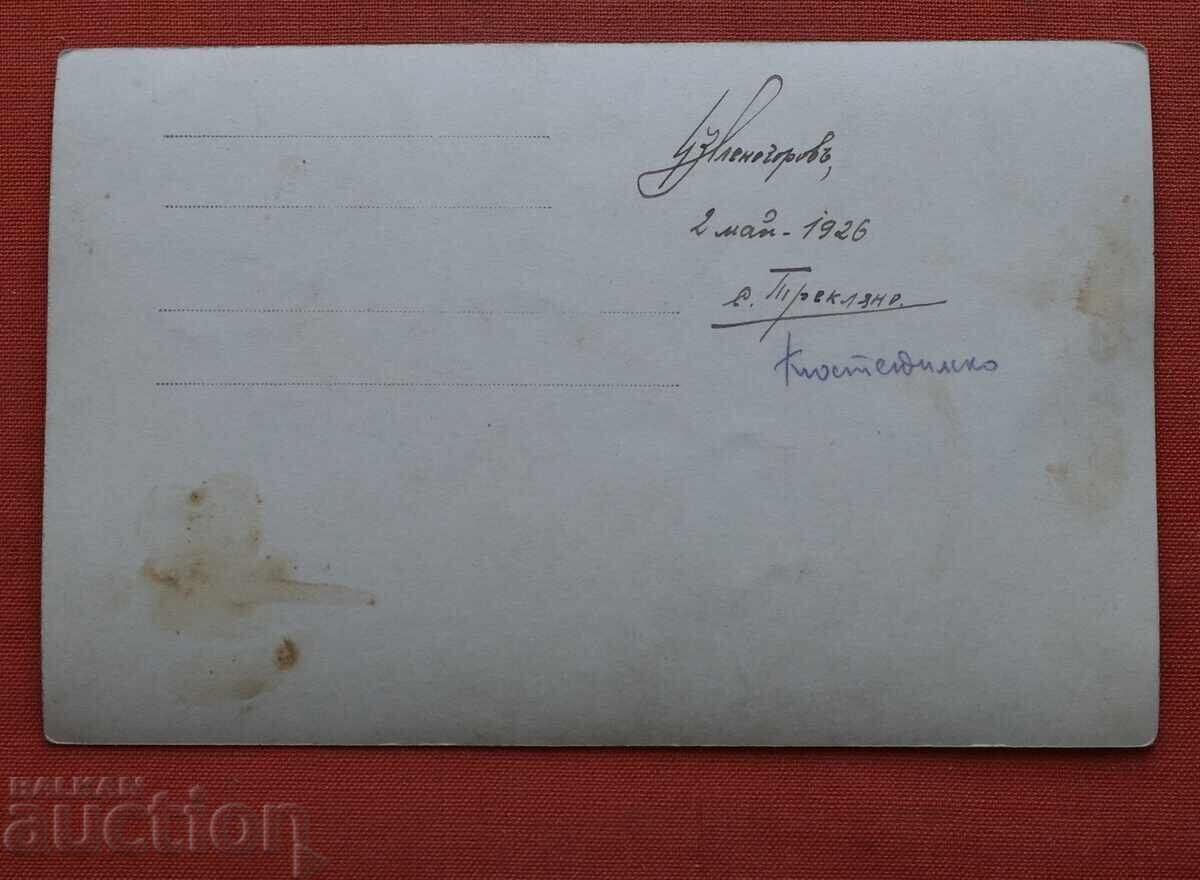 2 май - 1926
с. Трекляно.
Кюстендилско
BALKAN
auction